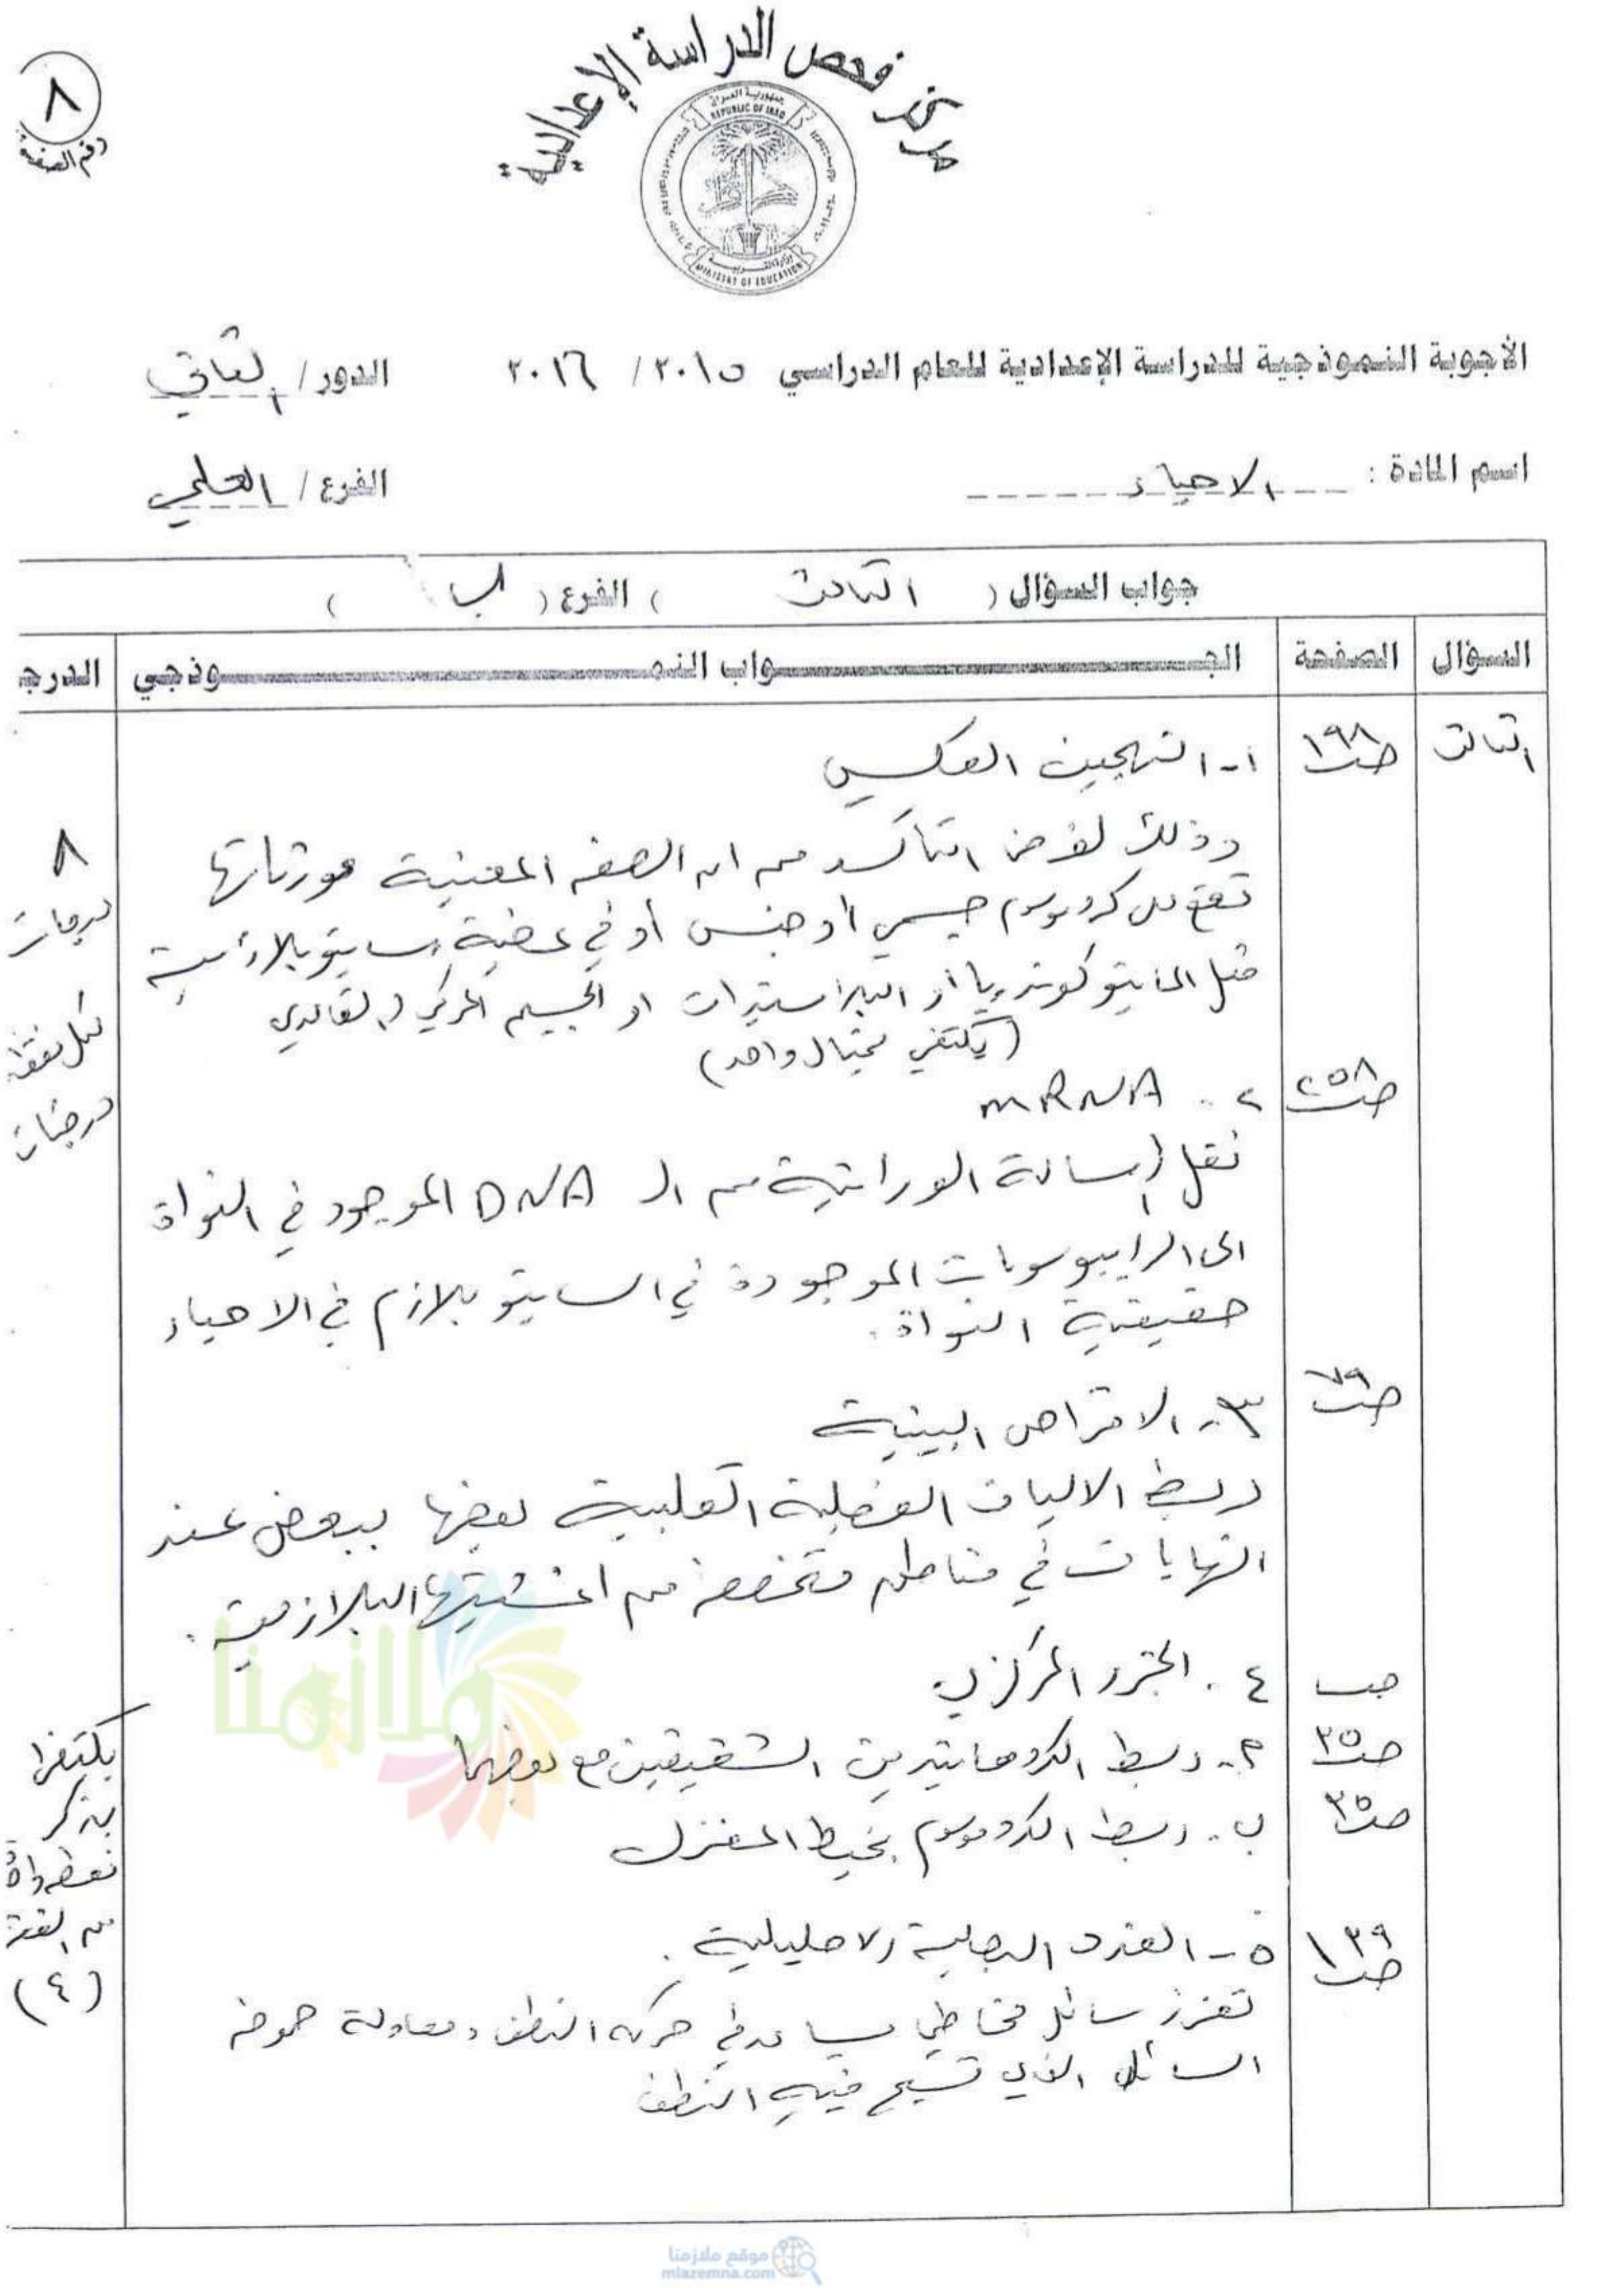 ٨
رقم الصفحة
مركز فحص الدراسة الإعدادية
جمهورية العراق
REPUBLIC OF IRAQ
وزارة التربية
MINISTRY OF EDUCATION
الأجوبة النموذجية للدراسة الإعدادية للعام الدراسي ٢٠١٥ / ٢٠١٦ الدور / الثاني
اسم المادة : الاحياء الفرع / العلمي
جواب السؤال ( الثالث ) الفرع ( ب )
السؤال الصفحة الجـــواب النمـــوذجي الدرجـ
الثالث ص١٩٨ ١- التهجين العكسي
وذلك لغرض التأكد من ان الصفة المعنية مورثاتها
تقع على كروموسوم جسمي او جنسي أو في عضية سايتوبلازمية
مثل المايتوكوندريا او البلاستيدات او الجسيم المركزي القاعدي
(يكتفي بمثال واحد)
٨
درجات
لكل نقطة
درجتان
ص٢٥٨ ٢- mRNA
نقل الرسالة الوراثية من الـ DNA الموجود في النواة
الى الرايبوسومات الموجودة في السايتوبلازم في الاحياء
حقيقية النواة.
ص٧٩ ٣- الاقراص البينية
ربط الالياف العضلية القلبية بعضها ببعض عند
النهايات في مناطق متخصصة من اغشيتها البلازمية.
٤. الجزء المركزي
ص٣٥ ٢- ربط الكروماتيدين الشقيقين مع بعضهما
ص٣٥ ب- ربط الكروموسوم بخيط المغزل
يكتفى
بذكر
نقطة واحدة
من النقطة
(٤)
ص١٣٩ ٥- الغدد البصلية الاحليلية.
تفرز سائل مخاطي يساعد في حركة النطف ومعادلة حموضة
السائل الذي تسبح فيه النطف
ملازمنا
موقع ملازمنا
mlazemna.com